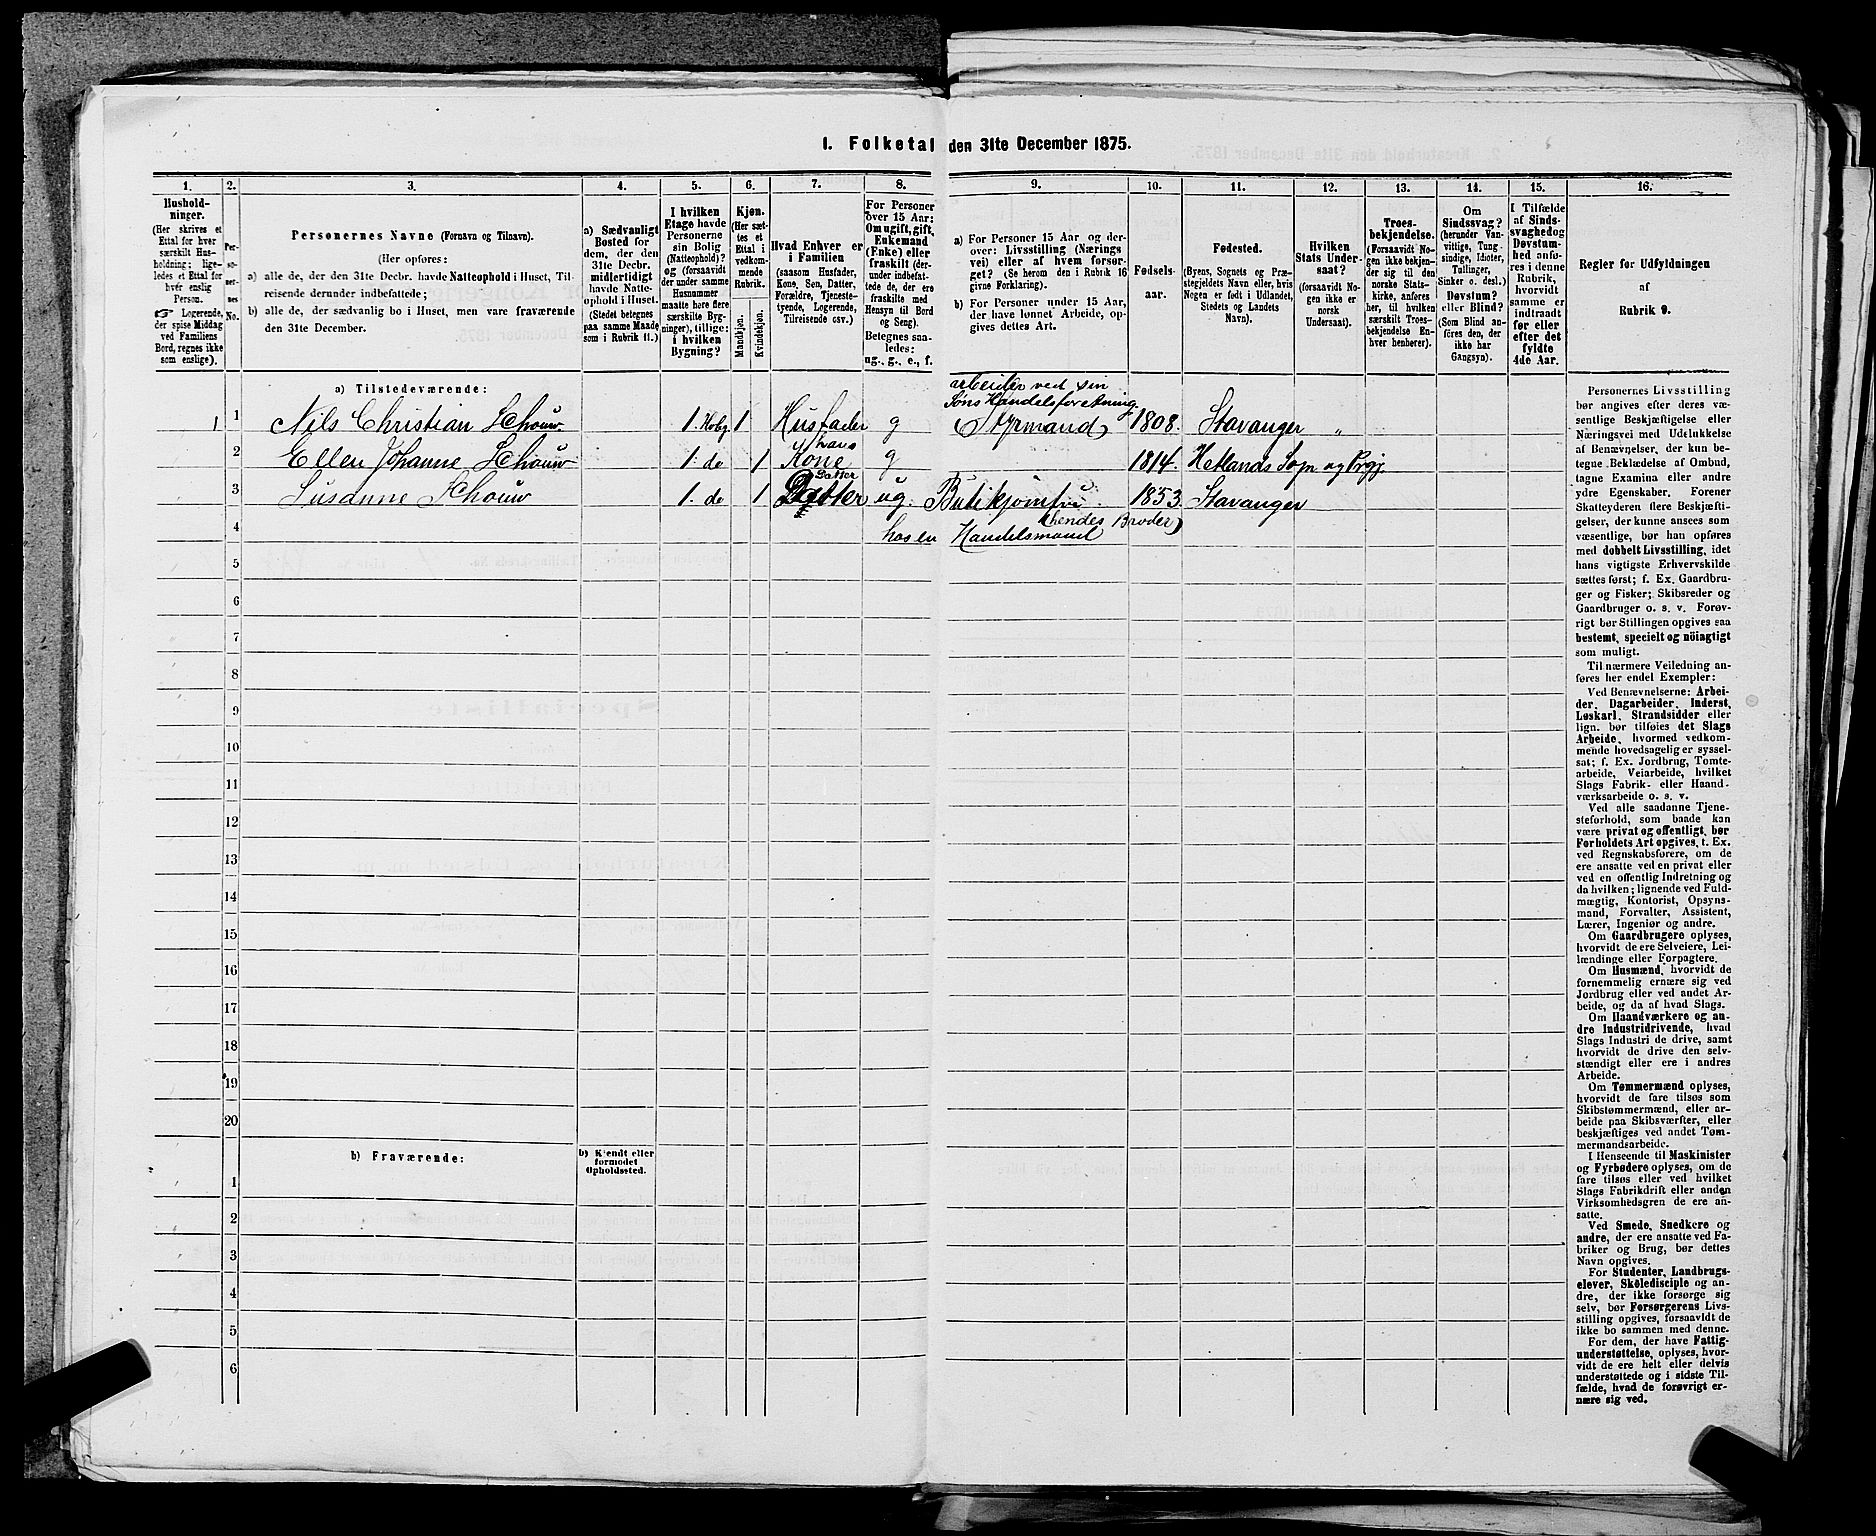 1. Folketal den 31te December 1875.
1. 2. 3. 4. 5. 6. 7. 8. 9. 10. 11. 12. 13. 14. 15. 16.
Husholdninger.
(Her skrives et
Ettal for hver
særskilt Hus-
holdning; lige-
ledes et Ettal for
hver enslig
Person.
☞ Logerende,
der spise Middag
ved Familiens
Bord, regnes ikke
som enslige).
Per-
so-
ner-
nes
No.
Personernes Navne (Fornavn og Tilnavn).
(Her opføres:
a) alle de, der den 31te Decbr. havde Natteophold i Huset, Til-
reisende derunder indbefattede;
b) alle de, der sædvanlig bo i Huset, men vare fraværende
den 31te December.
a) Sædvanligt
Bosted for
dem, der den
31te Decbr.
midlertidigt
havde Natte-
ophold i Huset.
(Stedet betegnes
paa samme Maade
som i Rubrik 11.)
I hvilken
Etage havde
Personerne
sin Bolig
(Natteophold)?
og (forsaavidt
der under samme
Husnummer
maatte høre flere
særskilte Byg-
ninger), tillige:
i hvilken
Bygning?
Kjøn.
(Her sæt-
tes et
Ettal i
vedkom-
mende
Rubrik.
Mandkjøn.
Kvindekjøn.
Hvad Enhver er
i Familien
(saasom Husfader,
Kone, Søn, Datter,
Forældre, Tjeneste-
tyende, Logerende,
Tilreisende osv.)
For Personer
over 15 Aar:
Om ugift, gift,
Enkemand
(Enke) eller
fraskilt (der-
under indbefat-
tede de, der ere
fraskilte med
Hensyn til Bord
og Seng).
Betegnes saa-
ledes:
ug., g., e., f.
a) For Personer 15 Aar og der-
over: Livsstilling (Nærings
vei) eller af hvem forsør-
get? (Se herom den i Rubrik 16
givne Forklaring).
b) For Personer under 15 Aar,
der have lønnet Arbeide, op-
gives dettes Art.
Fødsels-
aar.
Fødested.
(Byens, Sognets og Præ-
stegjeldets Navn eller, hvis
Nogen er født i Udlandet,
Stedets og Landets
Navn).
Hvilken
Stats Under-
saat?
(forsaavidt No-
gen ikke er
norsk
Undersaat).
Troes-
bekjendelse.
(Forsaavidt No-
gen ikke bekjen-
der sig til den
norske Stats-
kirke, anføres
her, til hvilken
særskilt Troes-
bekjendelse En-
hver henhører).
Om
Sindssvag?
(herunder Van-
vittige, Tung-
sindige, Idioter,
Tullinger,
Sinker o. desl.)
Døvstum?
eller Blind?
(Som Blind an-
føres den, der
ikke har
Gangsyn).
I Tilfælde
af Sinds-
svaghed og
Døvstum-
hed anfø-
res i denne
Rubrik,
hvorvidt
samme er
indtraadt
før eller
efter det
fyldte
4de Aar.
Regler for Udfyldningen
af
Rubrik 9.
a) Tilstedeværende:
arbeider ved sin
Søns Handelsforetning
1 1 Nils Christian Schouw 1. Hobg. 1 Husfader g (Styrmand) 1808. Stavanger "
hans
2 Ellen Johanne Schouw 1. do 1 Kone g 1814. Hetlands Sogn og Prgj.
Datter
3 Susanne Schouw 1. do 1 Datter ug. Butikjomfru 1853. Stavanger
(hendes Broder)
4 hos en Handelsmand
5
6
7
8
9
10
11
12
13
14
15
16
17
18
19
20
b) Fraværende:
b) Kjendt eller
formodet
Opholdssted.
1
2
3
4
5
6
Personernes Livsstilling
bør angives efter deres væ-
sentlige Beskjæftigelse eller
Næringsvei med Udelukkelse
af Benævnelser, der kun be-
tegne Beklædelse af Ombud,
tagne Examina eller andre
ydre Egenskaber. Forener
Skatteyderen flere Beskjæfti-
gelser, der kunne ansees som
væsentlige, bør han opføres
med dobbelt Livsstilling, idet
hans vigtigste Erhvervskilde
sættes først; f. Ex. Gaardbru-
ger og Fisker; Skibsreder og
Gaardbruger o. s. v. Forøv-
rigt bør Stillingen opgives saa
bestemt, specielt og nöiagtigt
som muligt.
Til nærmere Veiledning an-
føres her endel Exempler:
Ved Benævnelserne: Arbei-
der, Dagarbeider, Inderst,
Løskarl, Strandsidder eller
lign. bør tilføies det Slags
Arbeide, hvormed vedkom-
mende hovedsagelig er syssel-
sat; f. Ex. Jordbrug, Tomte-
arbeide, Veiarbeide, hvilket
Slags Fabrik- eller Haand-
værksarbeide o. s. v.
Ved alle saadanne Tjene-
steforhold, som baade kan
være privat og offentligt, bør
Forholdets Art opgives, t. Ex.
ved Regnskabsførere, om de
ere ansatte ved en privat eller
ved en offentlig Indretning og
da hvilken; lignende ved Fuld-
mægtig, Kontorist, Opsyns-
mand, Forvalter, Assistent,
Lærer, Ingeniør og andre.
Om Gaardbrugere oplyses,
hvorvidt de ere Selveiere, Lei-
lændinge eller Forpagtere.
Om Husmænd, hvorvidt de
fornemmelig ernære sig ved
Jordbrug eller ved andet Ar-
beide, og da af hvad Slags.
Om Haandværkere og an-
dre Industridrivende, hvad
Slags Industri de drive, samt
hvorvidt de drive den selv-
stændigt eller ere i andres
Arbeide.
Om Tømmermænd oplyses,
hvorvidt de fare tilsøs som
Skibstømmermænd, eller ar-
beide paa Skibsværfter, eller
beskjæftiges ved andet Tøm-
mermandsarbeide.
I Henseende til Maskinister
og Fyrbødere oplyses, om de
fare tilsøs eller ved hvilket
Slags Fabrikdrift eller anden
Virksomhedsgren de ere an-
satte.
Ved Smede, Snedkere og
andre, der ere ansatte ved Fa-
briker og Brug, bør dettes
Navn opgives.
For Studenter, Landbrugs-
elever, Skoledisciple og an-
dre, der ikke forsørge sig
selv, bør Forsørgerens Livs-
stilling opgives, forsaavidt de
ikke bo sammen med denne.
For dem, der have Fattig-
understøttelse, oplyses, hvor-
vidt de ere helt eller delvis
understøttede og i sidste Til-
fælde, hvad de forøvrigt er-
nære sig ved.